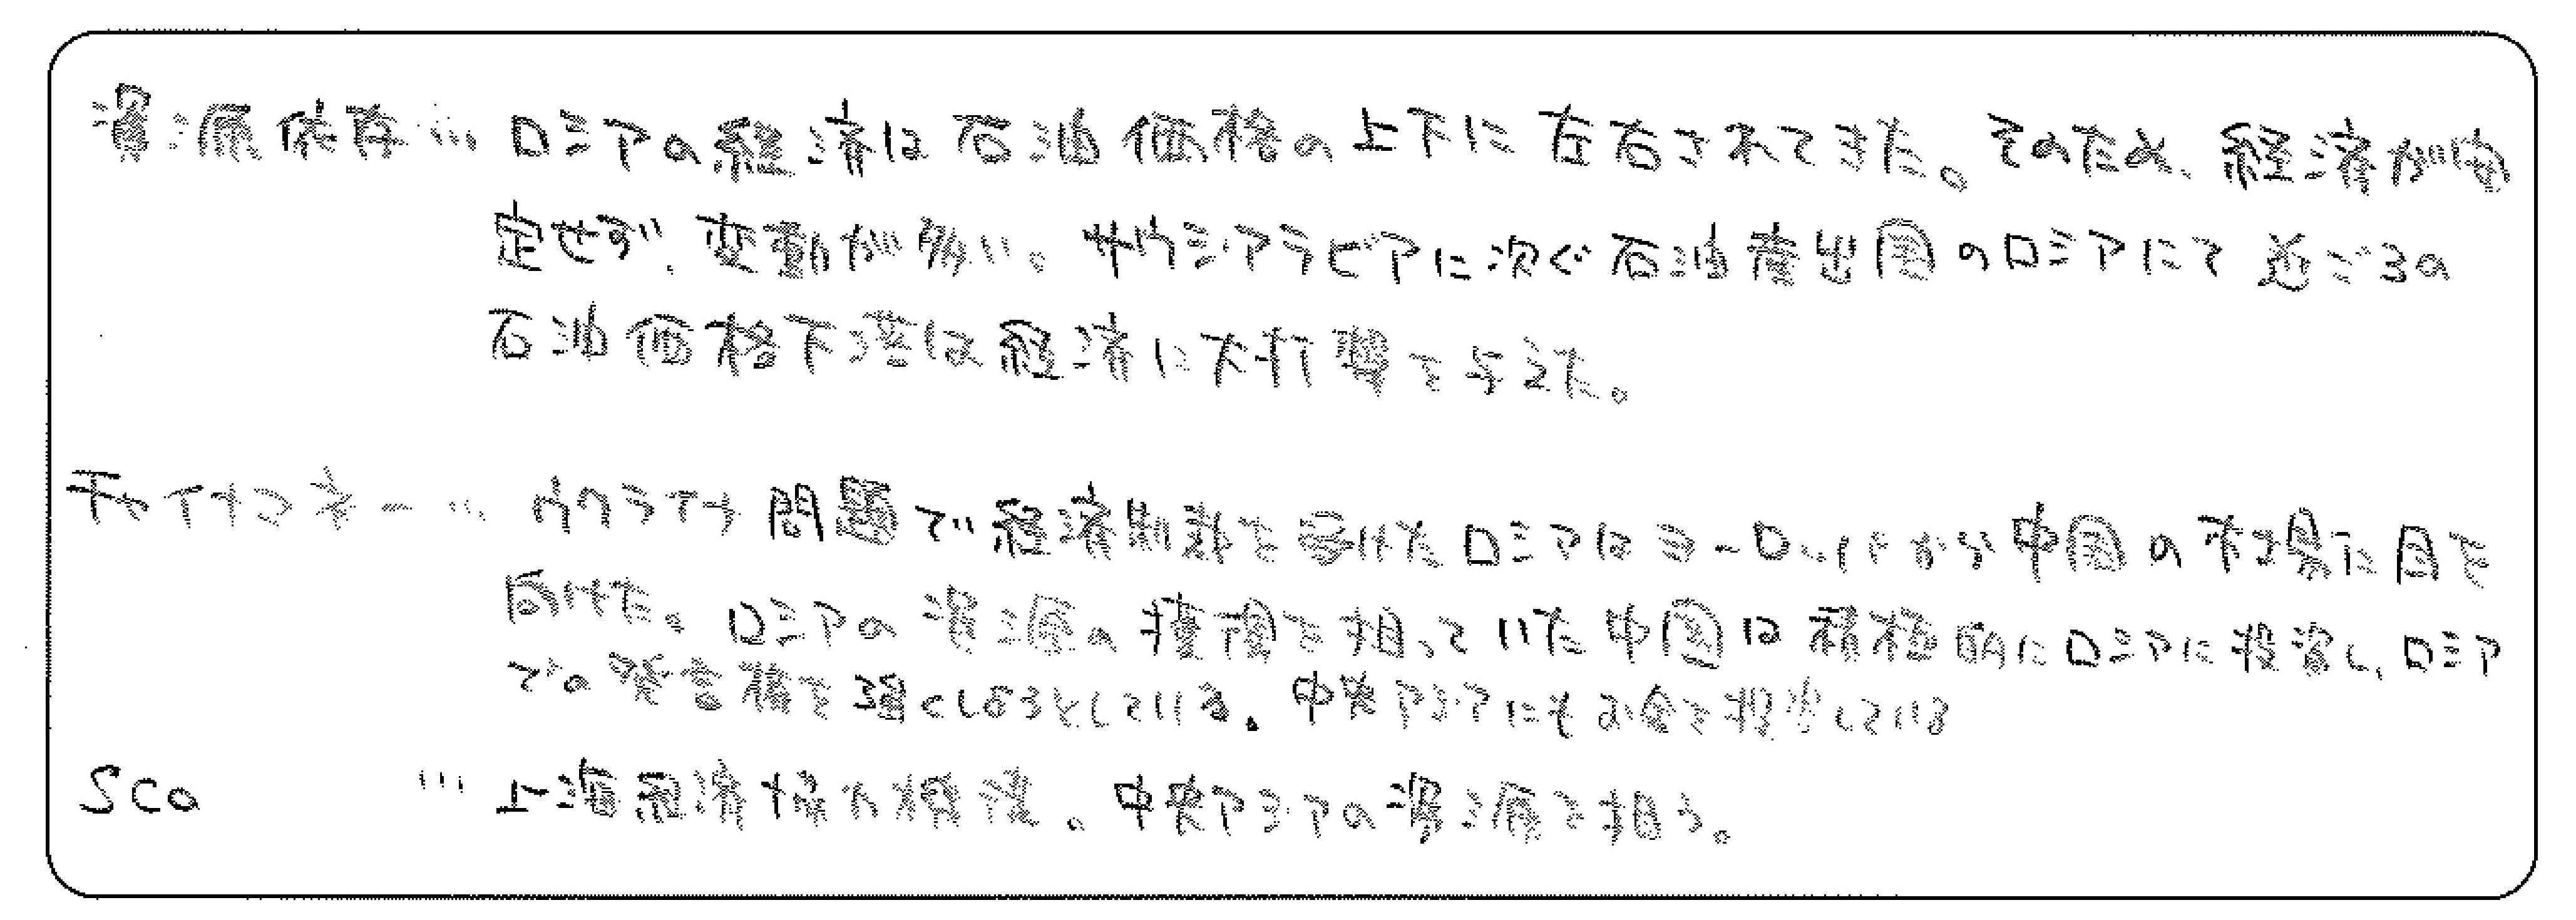 資源依存… ロシアの経済は石油価格の上下に左右されてきた。そのため、経済が安
定せず、変動が多い。サウジアラビアに次ぐ石油産出国のロシアにて近ごろの
石油価格下落は経済に大打撃を与えた。
チャイナマネー… ウクライナ問題で経済制裁を受けたロシアはヨーロッパから中国の市場に目を
向けた。ロシアの資源の権を狙っていた中国は積極的にロシアに投資し、ロシア
での発言権を強くしようとしている。中央アジアにもお金を投資している
SCO … 上海経済協力機構。中央アジアの資源を狙う。